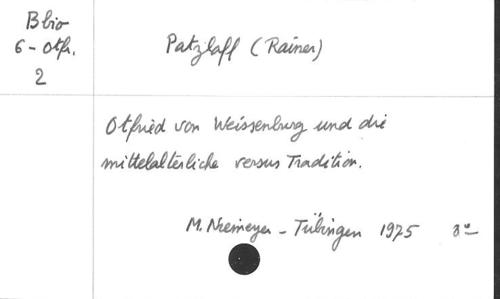 B bio
6 - Otfr.
2
Patzlaff (Rainer)
Otfried von Weissenburg und die
mittelalterliche versus Tradition.
M. Niemeyer - Tübingen 1975 8º